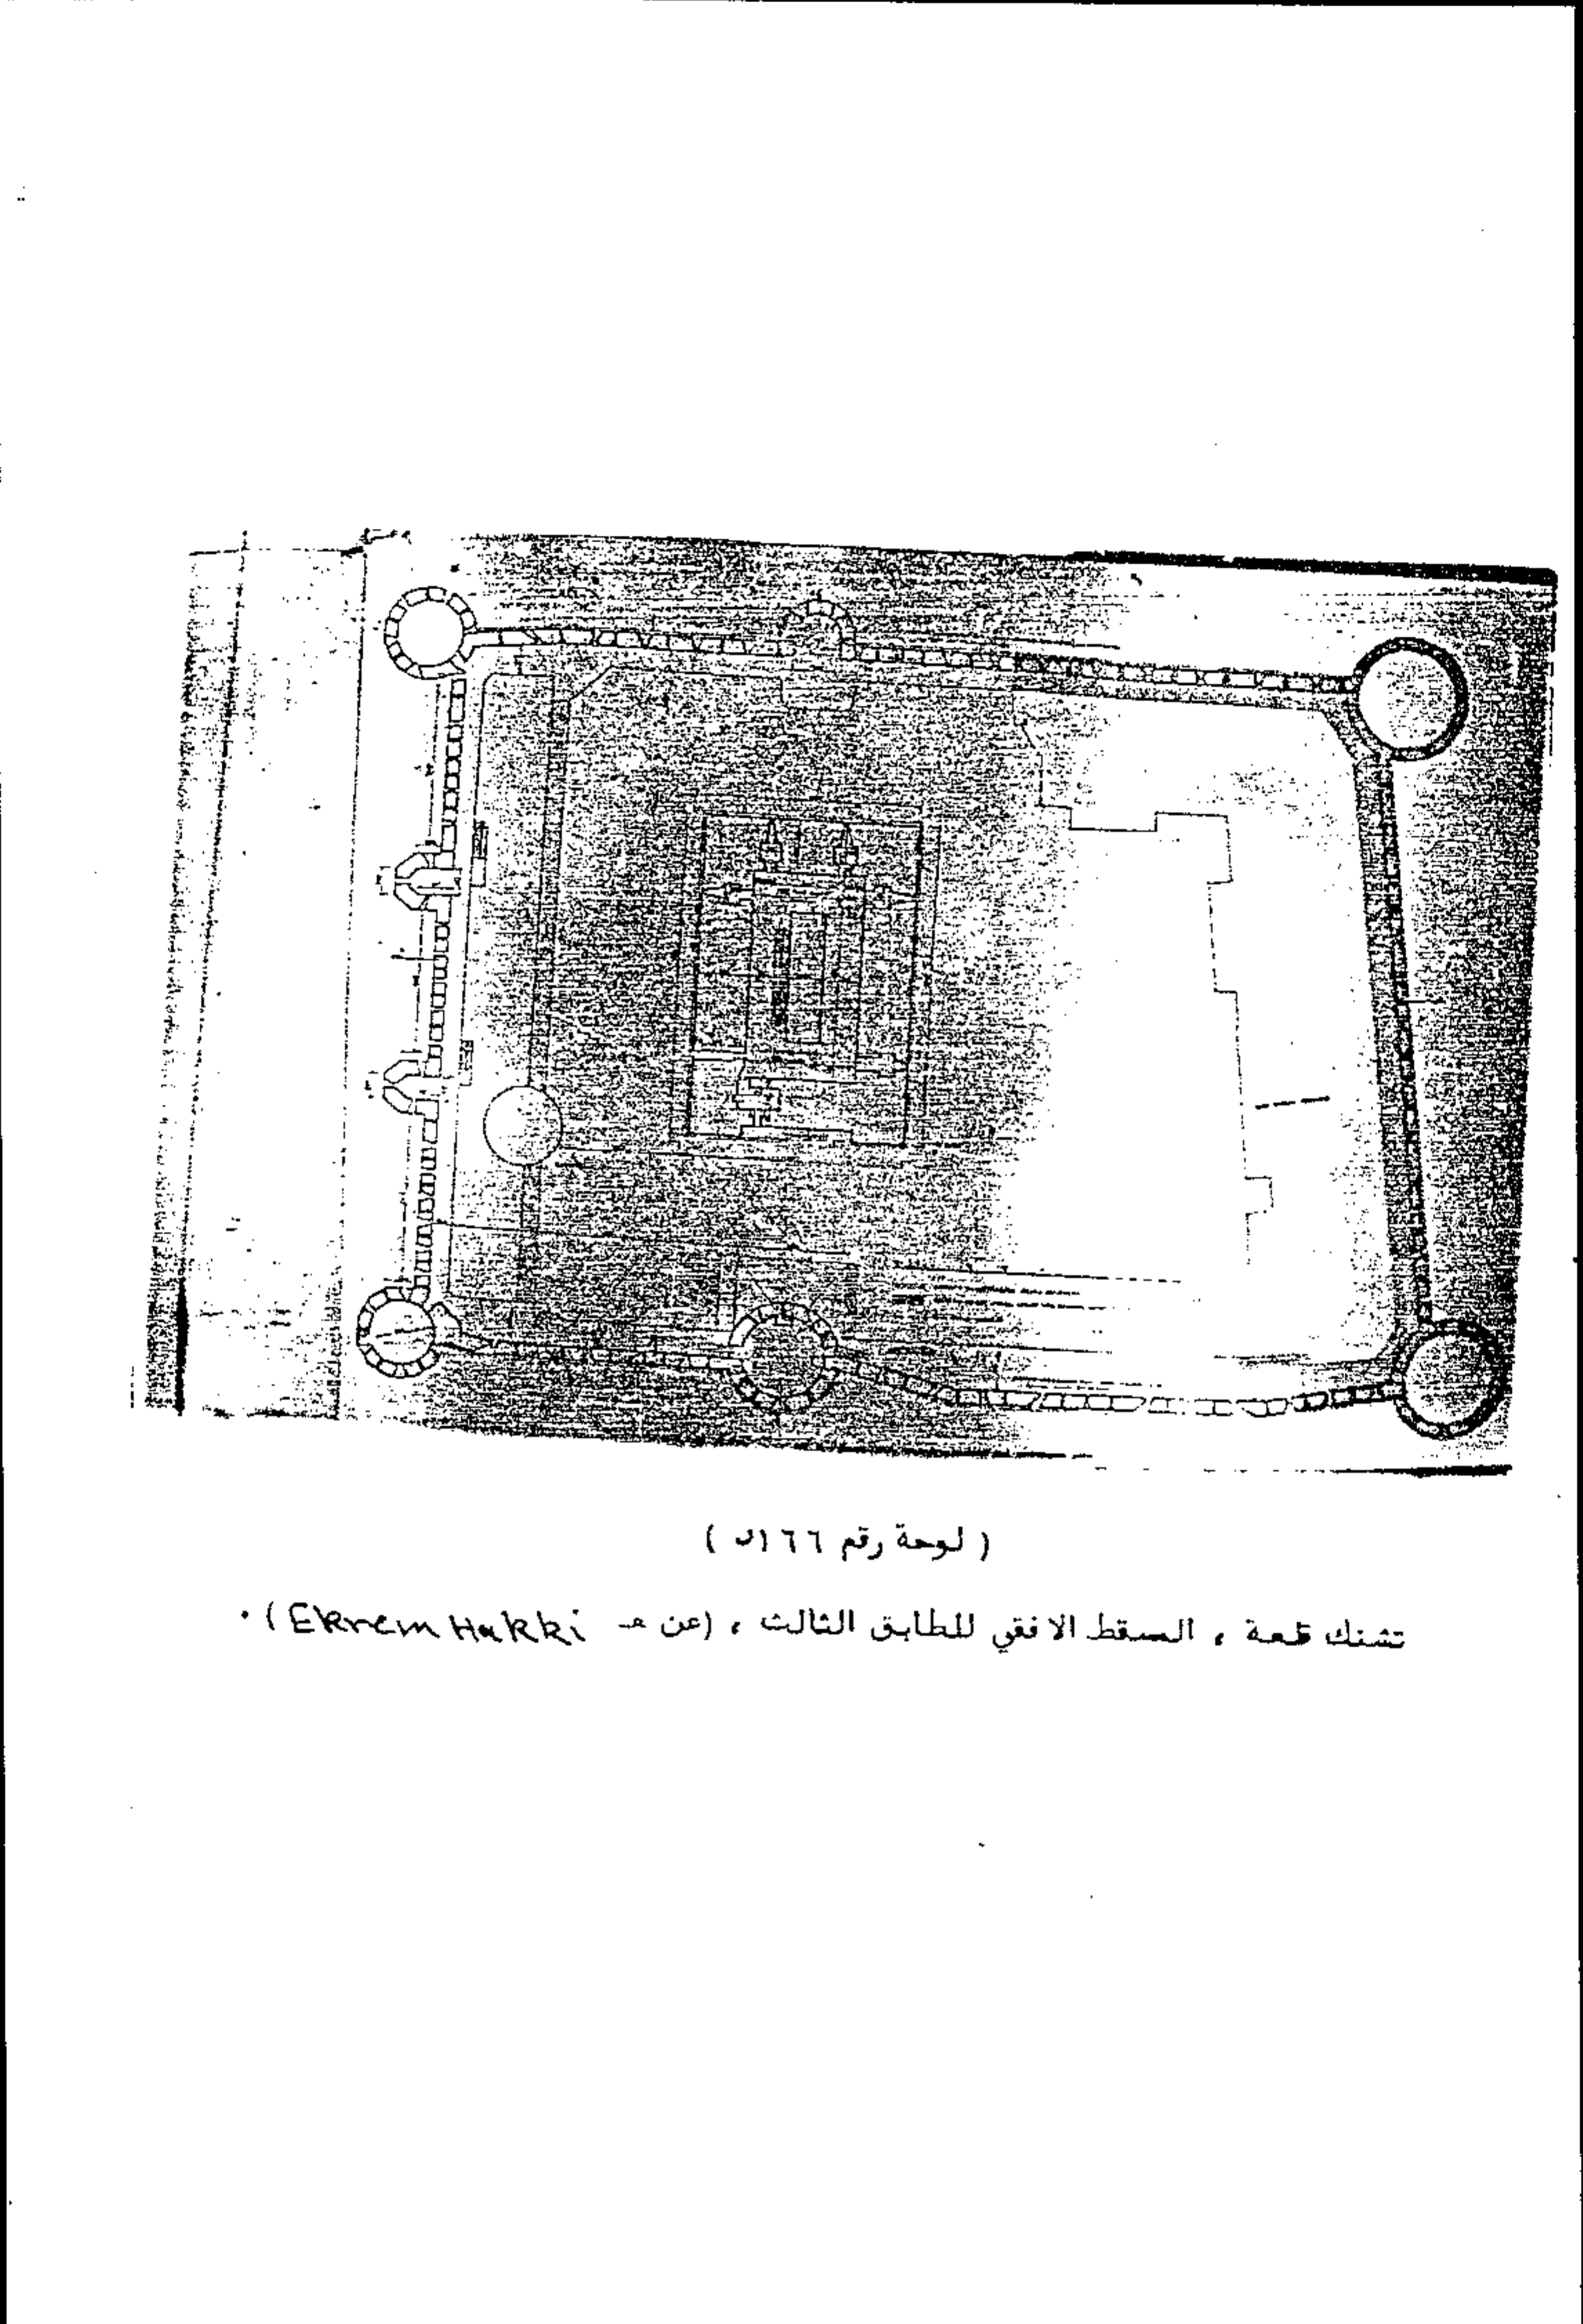 ( لوحة رقم ١٦٦ )
تشنك قلعة ، المسقط الافقي للطابق الثالث ، (عن ـ Ekrem Hakki) .